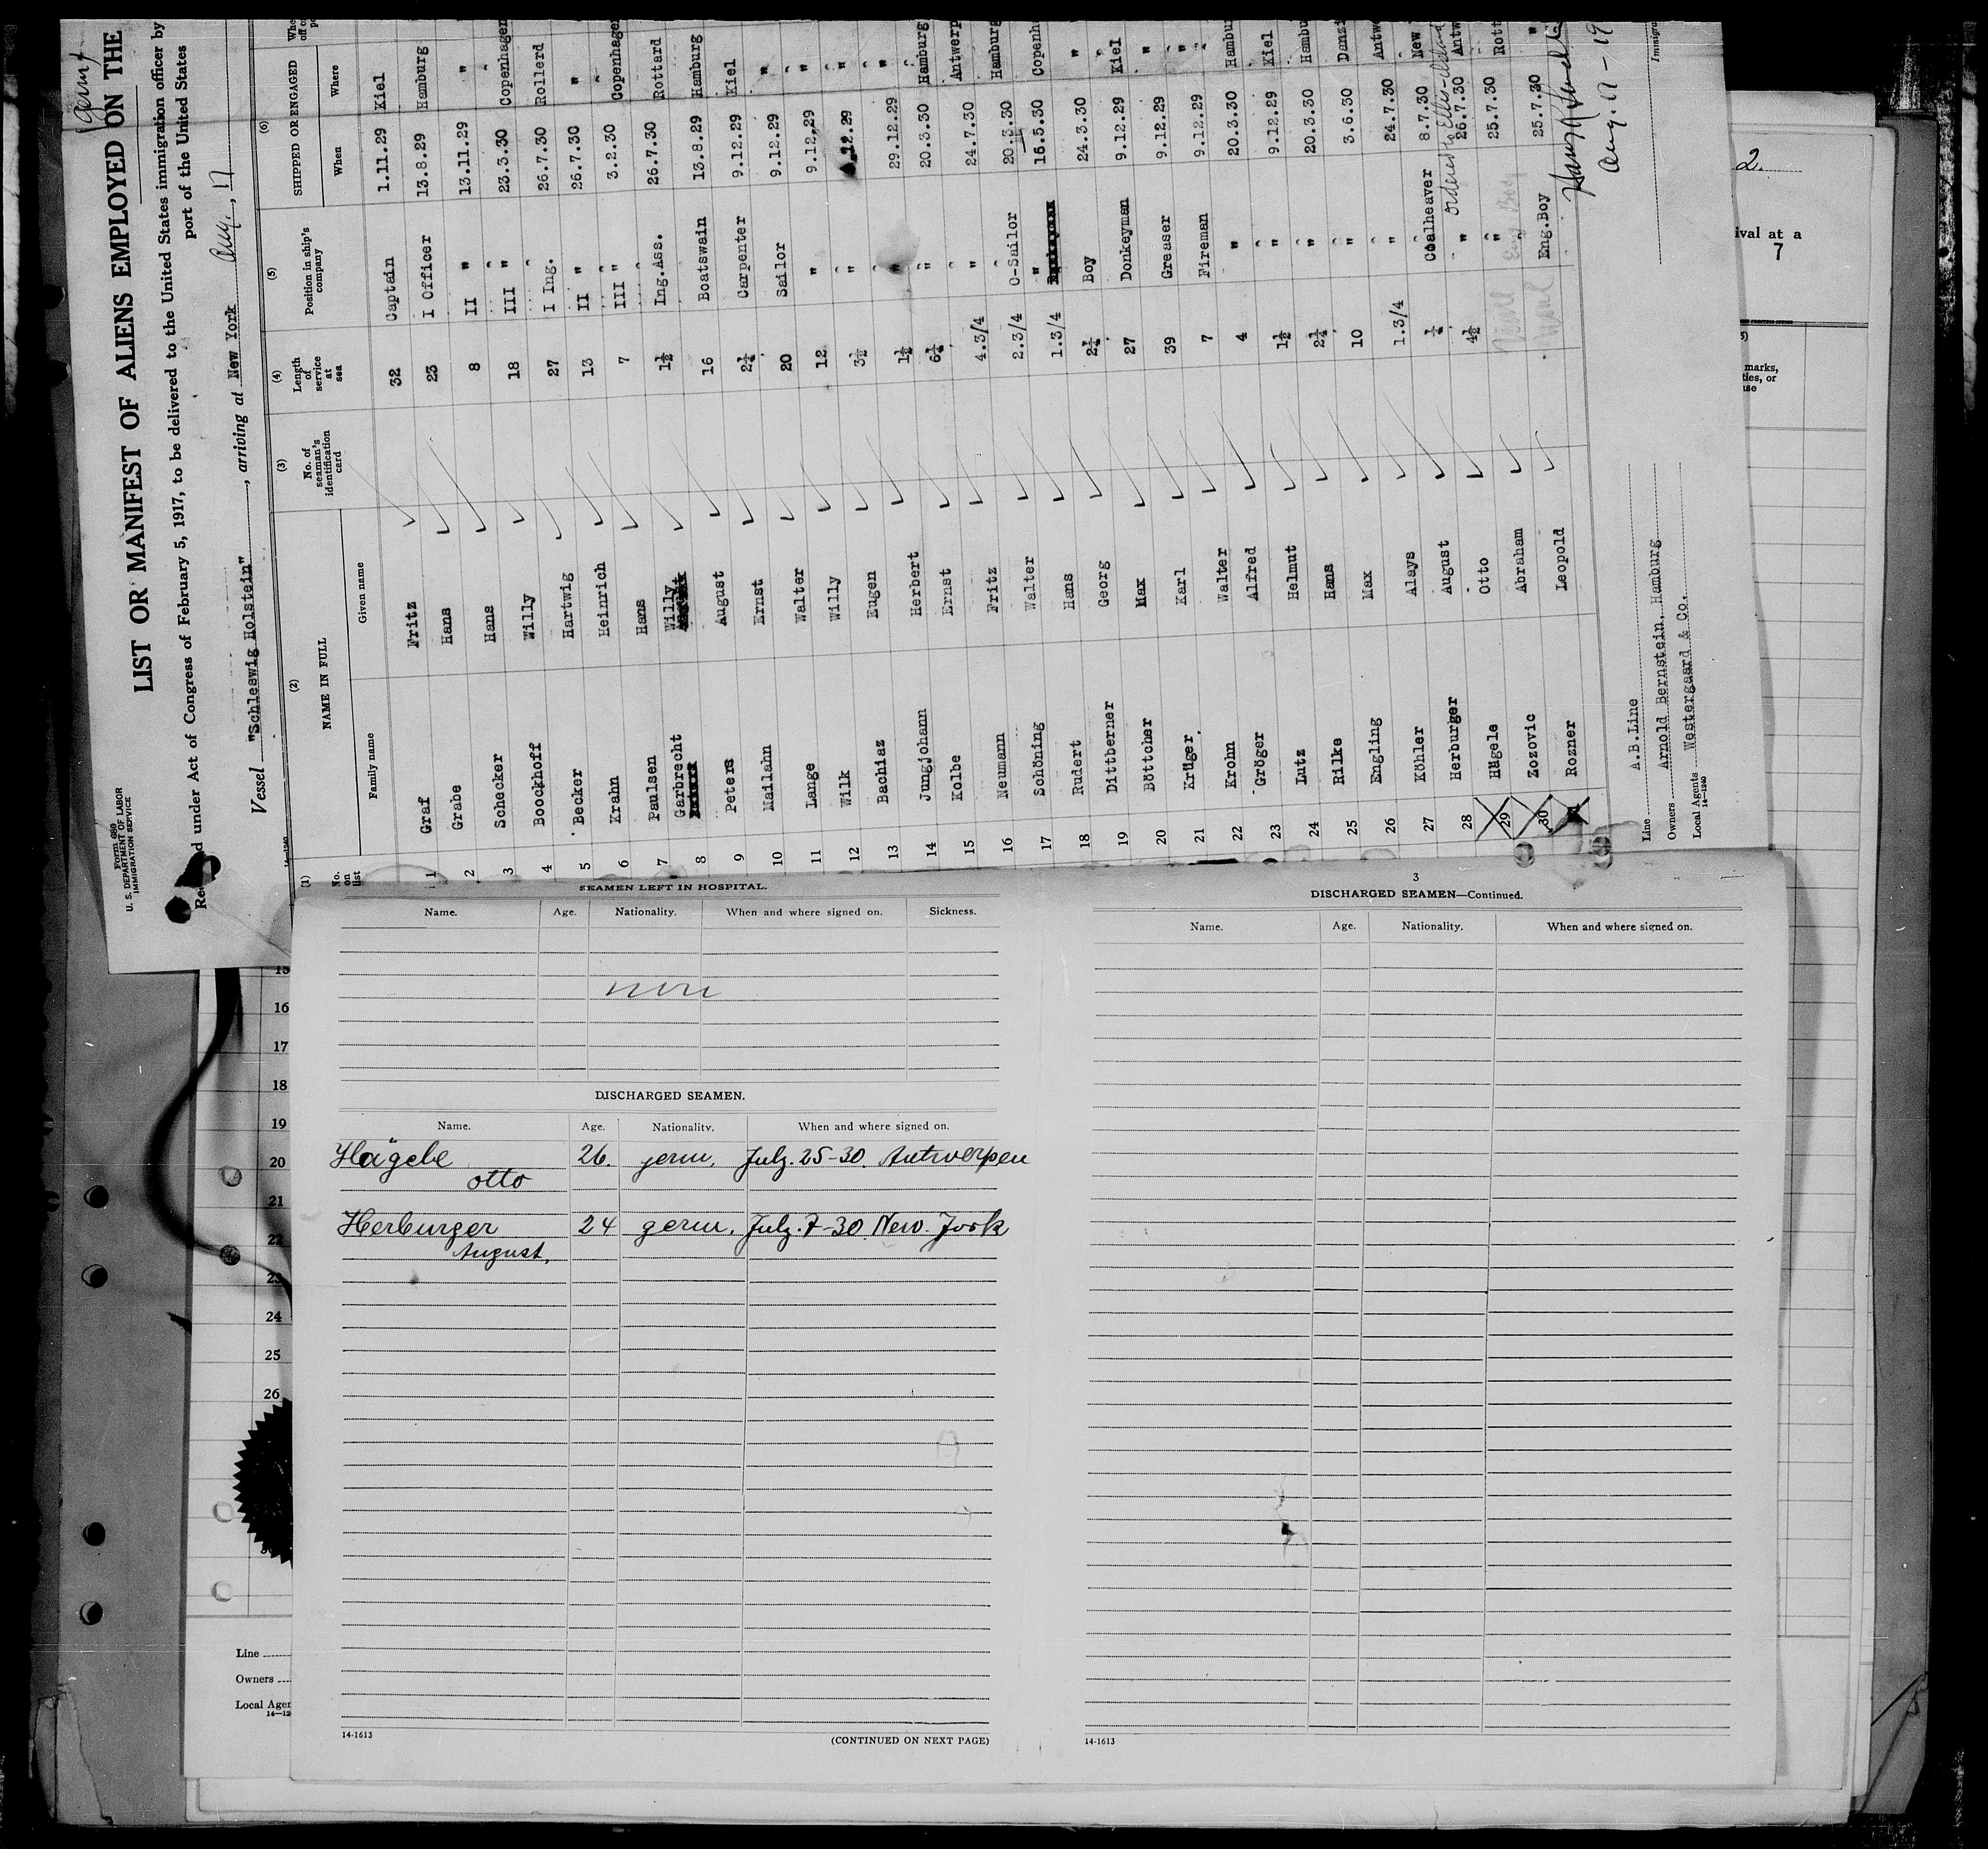 Form 680
U. S. DEPARTMENT OF LABOR
IMMIGRATION SERVICE
LIST OR MANIFEST OF ALIENS EMPLOYED ON THE
under Act of Congress of February 5, 1917, to be delivered to the United States immigration officer by
port of the United States
Vessel "Schleswig Holstein", arriving at New York Aug., 17
(1) (2) (3) (4) (5) (6)
No. on list NAME IN FULL No. of seaman's identification card Length of service at sea Position in ship's company SHIPPED OR ENGAGED
Family name Given name When Where
1 Graf Fritz 32 Captain 1.11.29 Kiel
2 Grabe Hans 23 I Officer 13.8.29 Hamburg
3 Schecker Hans 8 II " 13.11.29 "
4 Boockhoff Willy 18 III " 23.3.30 Copenhagen
5 Becker Hartwig 27 I Ing. 26.7.30 Rollerd
6 Krahn Heinrich 13 II " 26.7.30 "
7 Paulsen Hans 7 III " 3.2.30 Copenhagen
Garbrecht Willy 1½ Ing.Ass. 26.7.30 Rottard
8 Peters August 16 Boatswain 13.8.29 Hamburg
9 Mailahn Ernst 2¼ Carpenter 9.12.29 Kiel
10 Lange Walter 20 Sailor 9.12.29 "
11 Wilk Willy 12 " 9.12.29 "
12 Bachiaz Eugen 3½ " 12.29 "
13 Jungjohann Herbert 1½ " 29.12.29 "
14 Kolbe Ernst 6¼ " 20.3.30 Hamburg
15 Neumann Fritz 4.3/4 " 24.7.30 Antwerp
16 Schöning Walter 2.3/4 O-Sailor 20.3.30 Hamburg
17 Rudert Hans 1.3/4 " 16.5.30 Copenh
18 Dittberner Georg 2¼ Boy 24.3.30 "
19 Böttcher Max 27 Donkeyman 9.12.29 Kiel
20 Krüger Karl 39 Greaser 9.12.29 "
21 Krohn Walter 7 Fireman 9.12.29 "
22 Gröger Alfred 4 " 20.3.30 Hambu
23 Lutz Helmut 1½ " 9.12.29 Kiel
24 Rilke Hans 2¼ " 20.3.30 Hambu
25 Engling Max 10 " 3.6.30 Danzi
26 Köhler Alays 1.3/4 " 24.7.30 Antwe
27 Herburger August ¼ Coalheaver 8.7.30 New
28 Hägele Otto 4½ " 26.7.30 Antw
29 Zozovic Abraham " 25.7.30 Rott
30 Rozner Leopold Eng.Boy 25.7.30 "
Line A.B.Line
Owners Arnold Bernstein, Hamburg
Local Agents Westergaard & Co.
14—1240
2.
ival at a
7
marks,
ties, or
use
15
16
17
18
19
20
21
22
23
24
25
26
Line
Owners
Local Agen
14—12
SEAMEN LEFT IN HOSPITAL.
Name. Age. Nationality. When and where signed on. Sickness.
DISCHARGED SEAMEN.
Name. Age. Nationality. When and where signed on.
Hägele 26. germ. July. 25-30. Antwerpen
Otto
Herburger 24 germ. July. 7-30 New. York
August,
14-1613
(CONTINUED ON NEXT PAGE)
3
DISCHARGED SEAMEN—Continued.
Name. Age. Nationality. When and where signed on.
14-1613